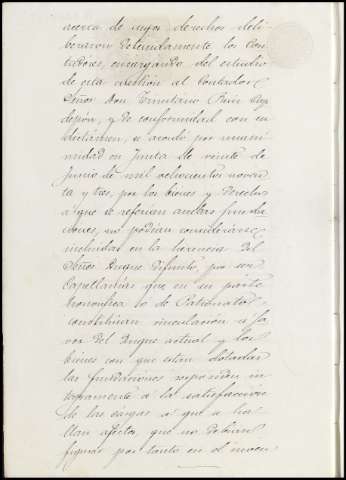 acerca de cuyos derechos deli-
beraron detenidamente los Con-
tadores, encargando del estudio
de esta cuestión al Contador
Señor Don Trinitario Ruiz Cap-
depón, y de conformidad con su
dictámen, se acordó por unani-
midad en Junta de veinte de
Junio de mil ochocientos noven-
ta y tres, que los bienes y derechos
á que se referian ambas funda-
ciones, no podian considerarse
incluidos en la herencia del
Señor Duque difunto, por ser
Capellanías que en su parte
honorifica ó de Patronato
constituian vinculación á fa-
vor del Duque actual y los
bienes con que estan dotadas
las fundaciones responden in-
tegramente á la satisfacción
de las cargas á que se ha-
llan afectos, que no debian
figurar por tanto en el inven-